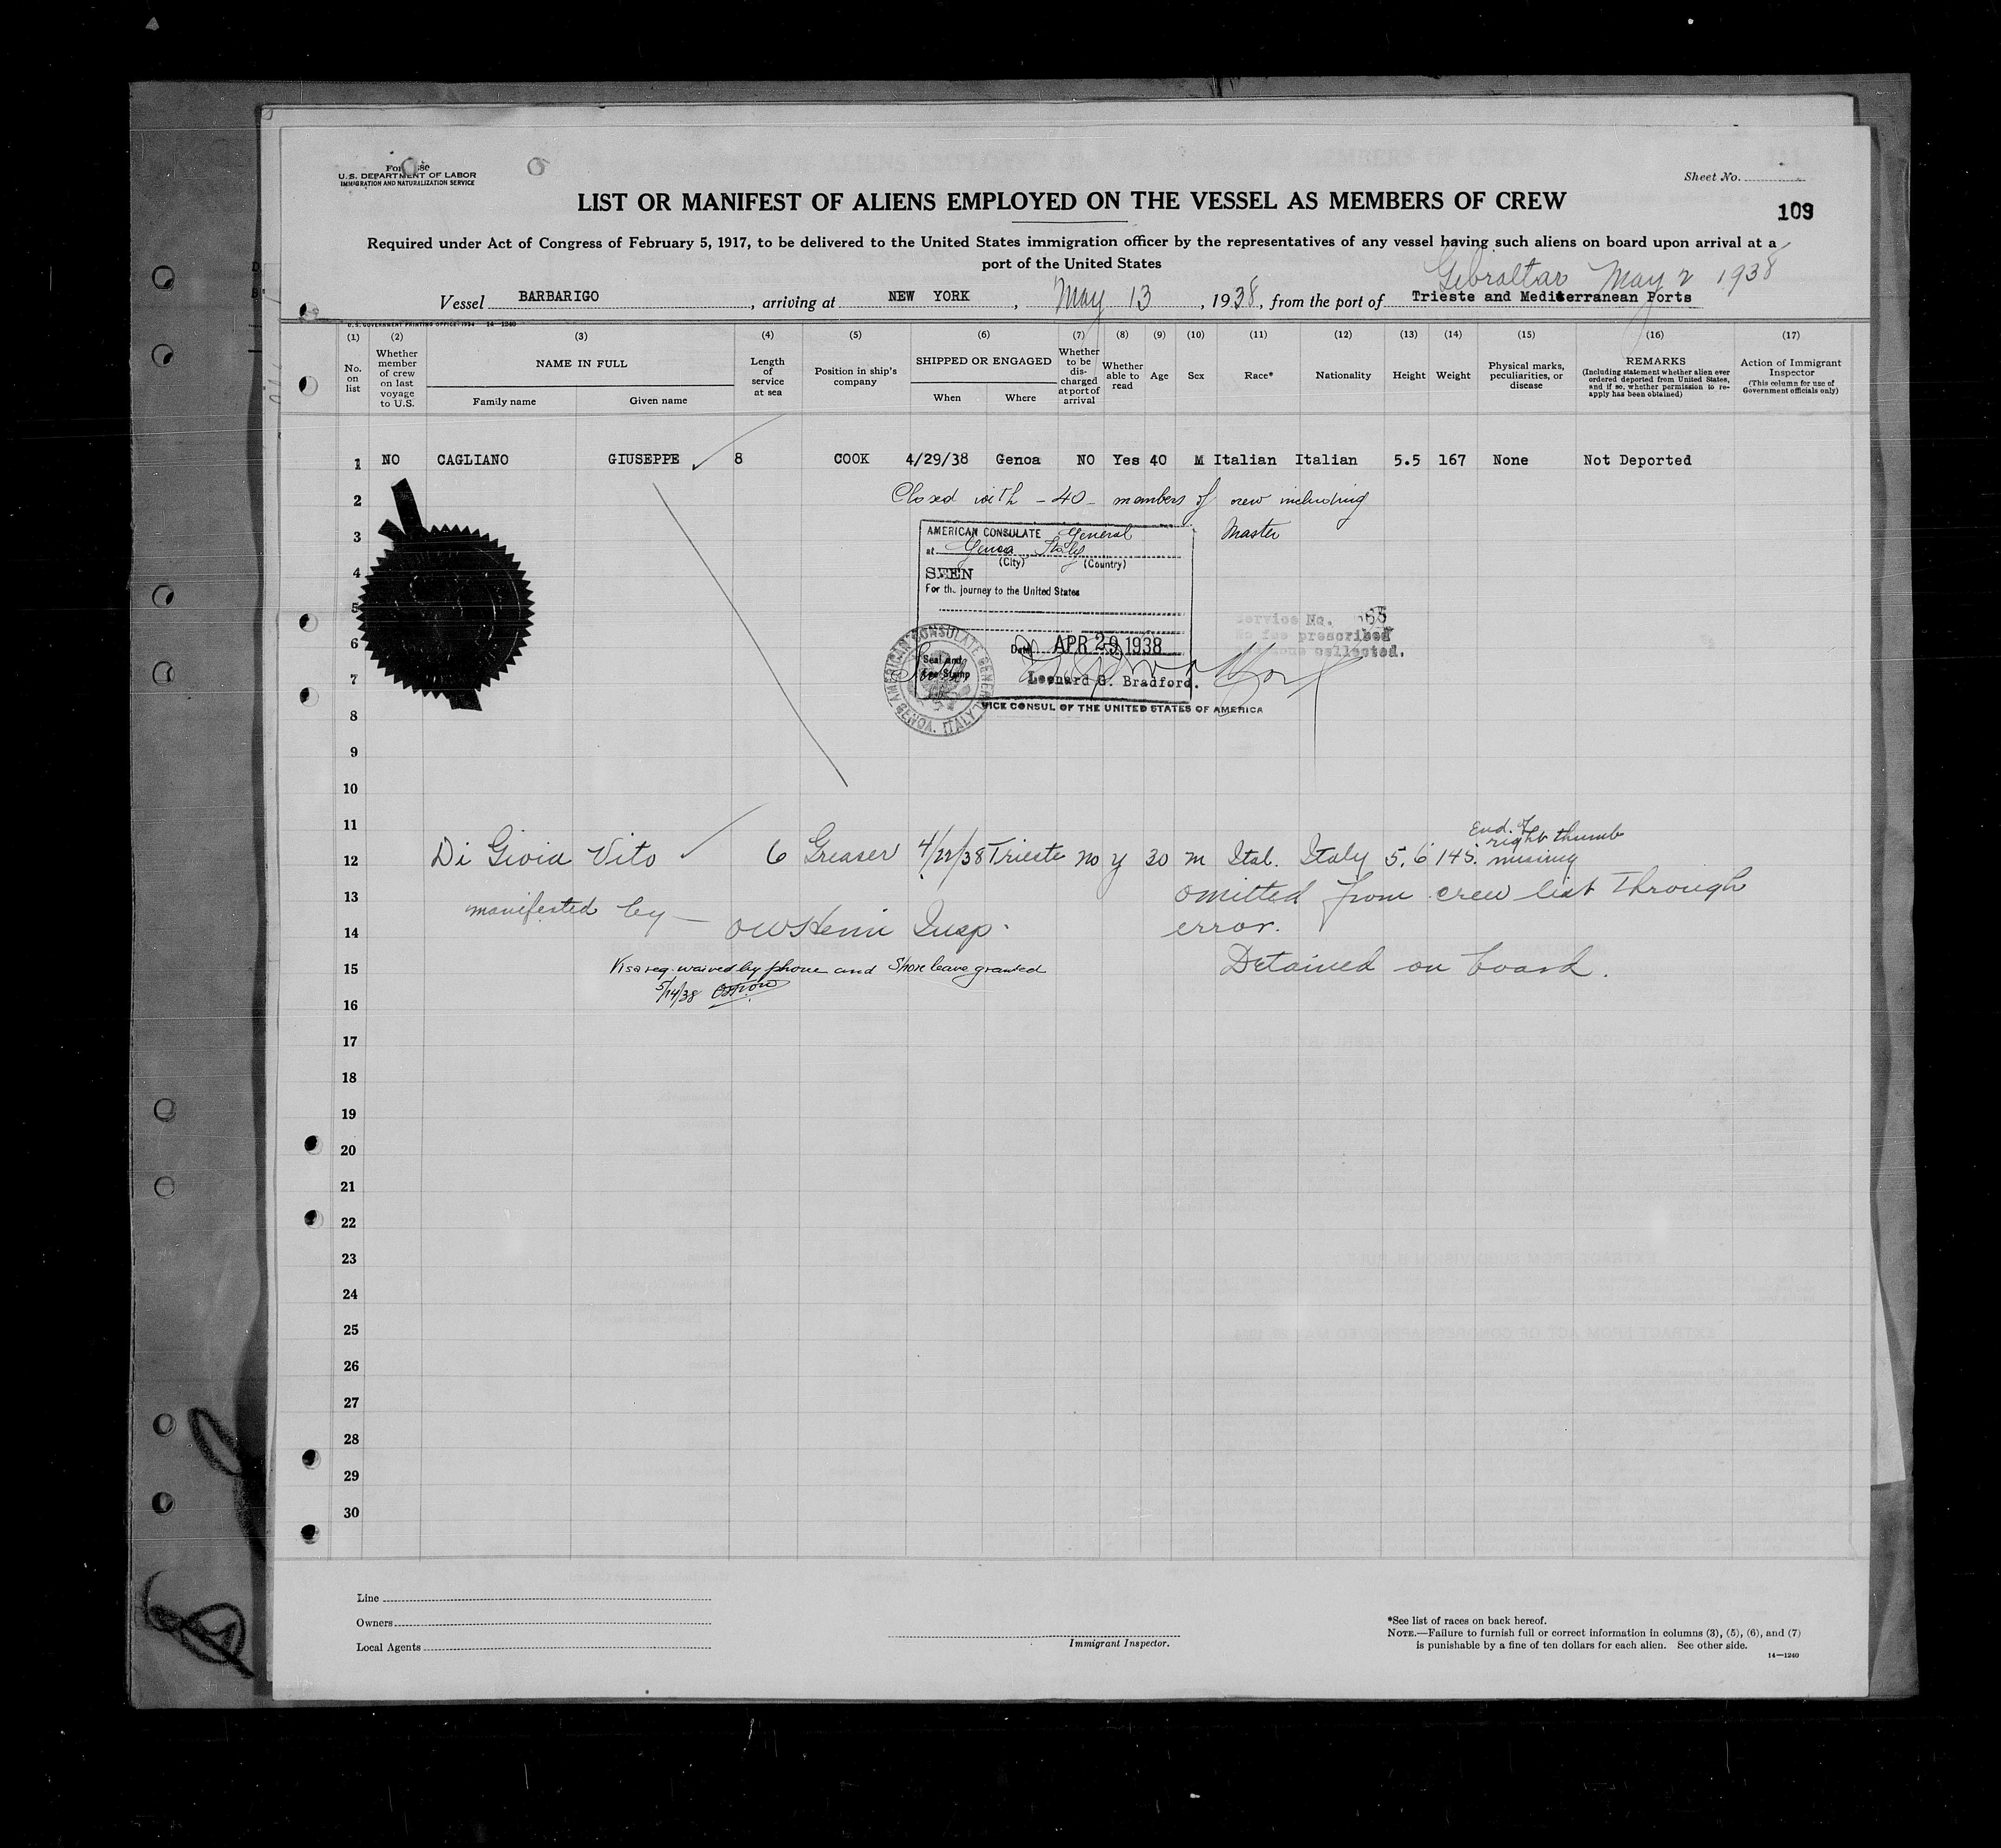 U.S. DEPARTMENT OF LABOR
IMMIGRATION AND NATURALIZATION SERVICE
Sheet No.
LIST OR MANIFEST OF ALIENS EMPLOYED ON THE VESSEL AS MEMBERS OF CREW
109
Required under Act of Congress of February 5, 1917, to be delivered to the United States immigration officer by the representatives of any vessel having such aliens on board upon arrival at a
port of the United States
Gibraltar May 2 1938
Vessel BARBARIGO, arriving at NEW YORK, May 13, 1938, from the port of Trieste and Mediterranean Ports
U.S. GOVERNMENT PRINTING OFFICE: 1934 14-1240
(1) (2) (3) (4) (5) (6) (7) (8) (9) (10) (11) (12) (13) (14) (15) (16) (17)
No. on list
Whether member of crew on last voyage to U.S.
NAME IN FULL
Family name
Given name
Length of service at sea
Position in ship's company
SHIPPED OR ENGAGED
When
Where
Whether to be discharged at port of arrival
Whether able to read
Age
Sex
Race*
Nationality
Height
Weight
Physical marks, peculiarities, or disease
REMARKS
(Including statement whether alien ever ordered deported from United States, and if so, whether permission to reapply has been obtained)
Action of Immigrant Inspector
(This column for use of Government officials only)
1 NO CAGLIANO GIUSEPPE 8 COOK 4/29/38 Genoa NO Yes 40 M Italian Italian 5.5 167 None Not Deported
2 Closed with - 40 - members of crew including
3 Master
AMERICAN CONSULATE General
at Genoa Italy
(City) (Country)
4
SEEN
For the journey to the United States
5
Service No.
No fee prescribed
collected.
6
Date APR 29 1938
Seal and
Fee Stamp
7
Leonard G. Bradford.
VICE CONSUL OF THE UNITED STATES OF AMERICA
AMERICAN CONSULATE GENERAL GENOA, ITALY
8
9
10
11
End of
right thumb
12 Di Gioia Vito 6 Greaser 4/22/38 Trieste no y 30 m Ital. Italy 5.6 145. missing
13 omitted from crew list through
manifested by —
14 Insp. error.
15 Visa req. waived by phone and Shore leave granted Detained on board.
5/14/38
16
17
18
19
20
21
22
23
24
25
26
27
28
29
30
Line
Owners
Local Agents
Immigrant Inspector.
*See list of races on back hereof.
NOTE.—Failure to furnish full or correct information in columns (3), (5), (6), and (7)
is punishable by a fine of ten dollars for each alien. See other side.
14—1240